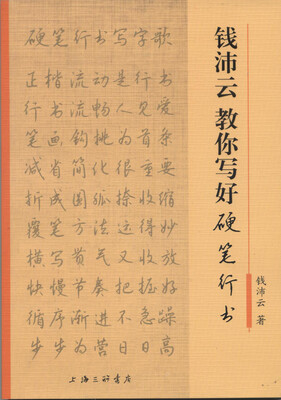 硬笔行书写字歌
正楷流动是行书
行书流畅人见爱
笔画钩挑为首条
减省简化很重要
折成圆弧捺收缩
覆笔方法运得妙
横写贯气又收放
快慢节奏把握好
循序渐进不急躁
步步为营日日高
钱沛云 教你写好 硬笔行书
钱沛云 著
上海三联书店